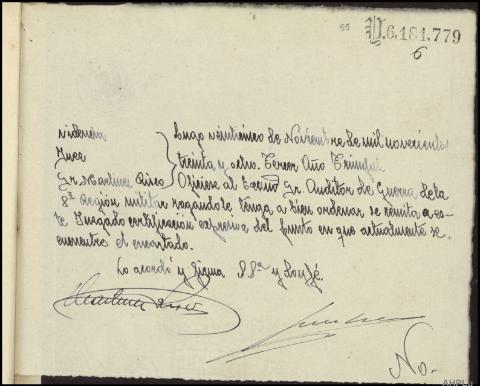 55 V.6,181,779
6
videncia
Juez
Sr. Martinez Risco
Lugo veinticinco de Noviembre de mil novecientos
treinta y ocho. Tercer Año Triunfal.
Ofíciese al Excmo Sr. Auditor de Guerra de la
8ª Región militar rogandole tenga a bien ordenar se remita a es-
te Juzgado certificacion expresiva del punto en que actualmente se
encuentre el encartado.
Lo acordó y firma SSª y doy fé.
Martinez Risco
No-
AHPLu